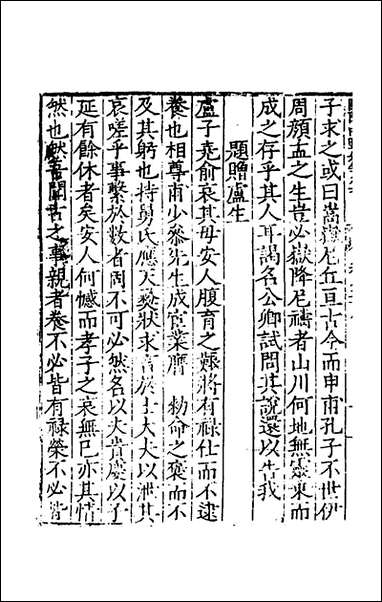 子求之或曰嵩嶽尼丘亘古今而申甫孔子不世伊
周顔孟之生豈必嶽降尼禱者山川何地無靈柬而
成之存乎其人耳謁名公卿試問其說還以告我
題贈盧生
盧子堯俞哀其母安人腹育之艱將有祿仕而不逮
養也相尊甫少叅先生成官業膺 勑命之褒而不
及其躬也持舅氏應天𠫵狀求言於士大夫以泄其
哀嗟乎事繫於數者固不可必然名以夫貴慶以子
延有餘休者矣安人何憾而孝子之哀無已亦其情
然也然吾聞古之事親者養不必皆有祿榮不必皆